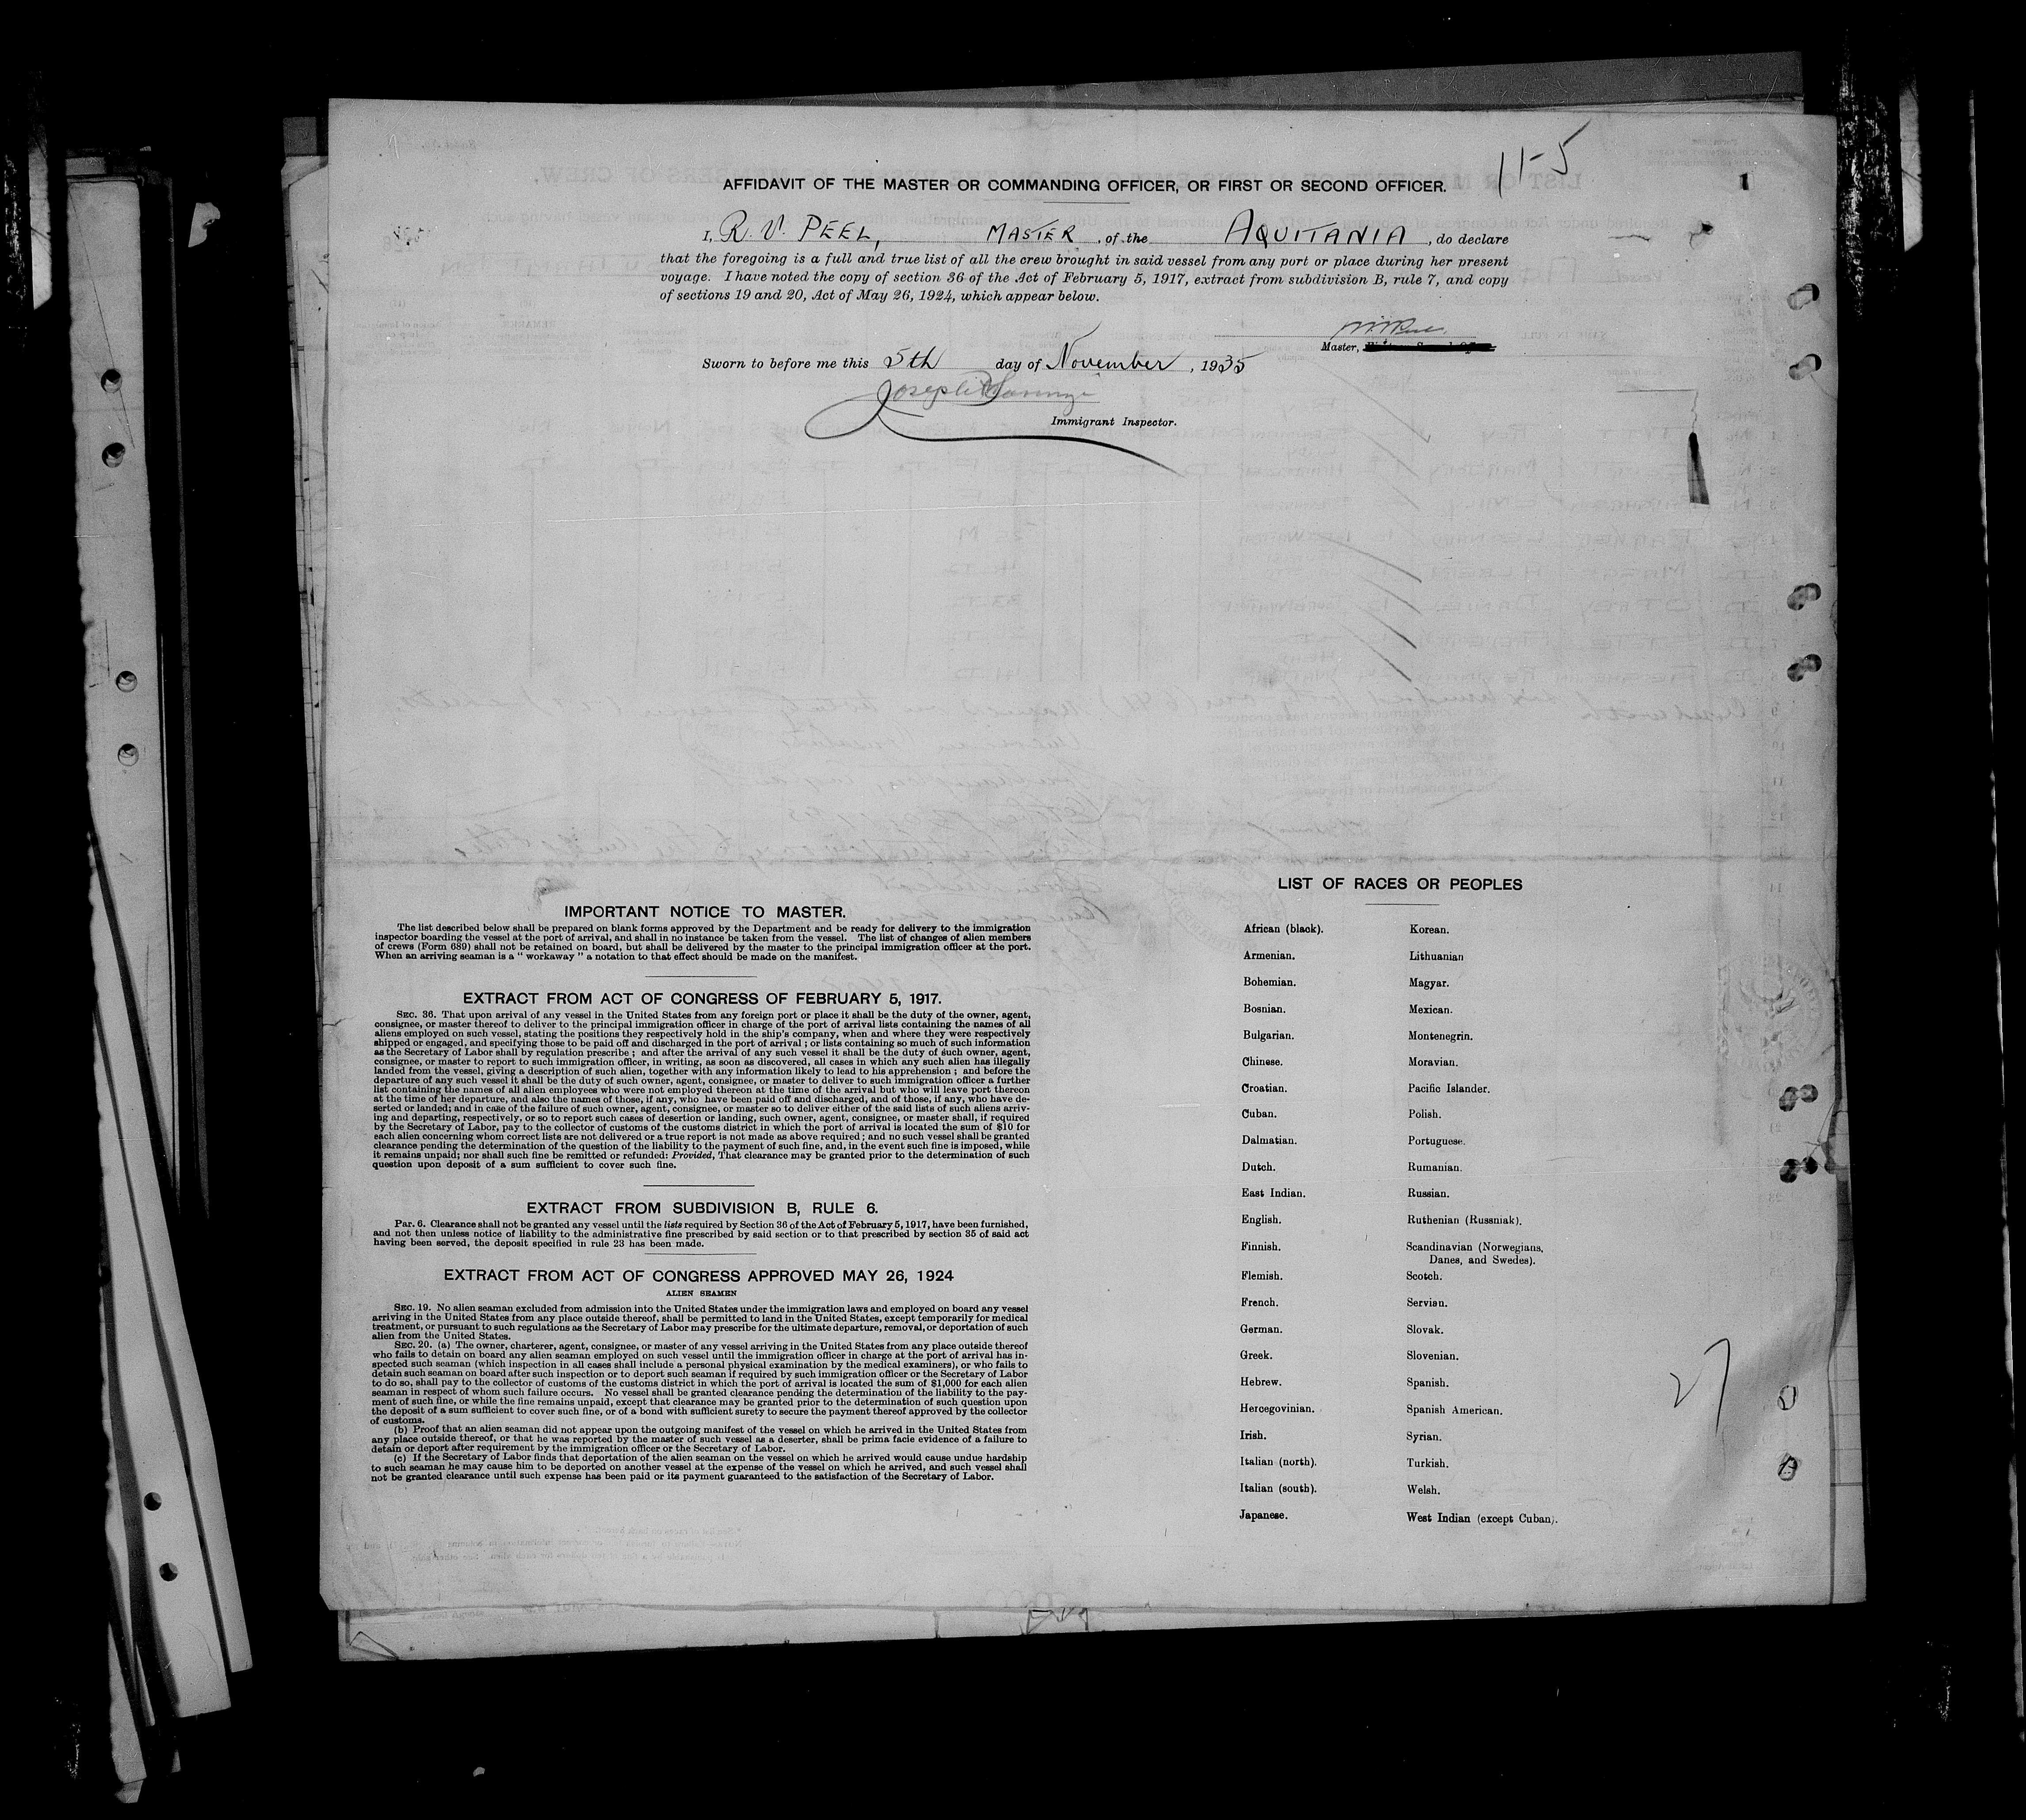 11-5
1
AFFIDAVIT OF THE MASTER OR COMMANDING OFFICER, OR FIRST OR SECOND OFFICER.
I, R. V. PEEL, MASTER, of the AQUITANIA, do declare
that the foregoing is a full and true list of all the crew brought in said vessel from any port or place during her present
voyage. I have noted the copy of section 36 of the Act of February 5, 1917, extract from subdivision B, rule 7, and copy
of sections 19 and 20, Act of May 26, 1924, which appear below.
Master,
Sworn to before me this 5th day of November, 1935
Joseph
Immigrant Inspector.
IMPORTANT NOTICE TO MASTER.
The list described below shall be prepared on blank forms approved by the Department and be ready for delivery to the immigration
inspector boarding the vessel at the port of arrival, and shall in no instance be taken from the vessel. The list of changes of alien members
of crews (Form 689) shall not be retained on board, but shall be delivered by the master to the principal immigration officer at the port.
When an arriving seaman is a " workaway " a notation to that effect should be made on the manifest.
EXTRACT FROM ACT OF CONGRESS OF FEBRUARY 5, 1917.
SEC. 36. That upon arrival of any vessel in the United States from any foreign port or place it shall be the duty of the owner, agent,
consignee, or master thereof to deliver to the principal immigration officer in charge of the port of arrival lists containing the names of all
aliens employed on such vessel, stating the positions they respectively hold in the ship's company, when and where they were respectively
shipped or engaged, and specifying those to be paid off and discharged in the port of arrival ; or lists containing so much of such information
as the Secretary of Labor shall by regulation prescribe ; and after the arrival of any such vessel it shall be the duty of such owner, agent,
consignee, or master to report to such immigration officer, in writing, as soon as discovered, all cases in which any such alien has illegally
landed from the vessel, giving a description of such alien, together with any information likely to lead to his apprehension ; and before the
departure of any such vessel it shall be the duty of such owner, agent, consignee, or master to deliver to such immigration officer a further
list containing the names of all alien employees who were not employed thereon at the time of the arrival but who will leave port thereon
at the time of her departure, and also the names of those, if any, who have been paid off and discharged, and of those, if any, who have de-
serted or landed; and in case of the failure of such owner, agent, consignee, or master so to deliver either of the said lists of such aliens arriv-
ing and departing, respectively, or so to report such cases of desertion or landing, such owner, agent, consignee, or master shall, if required
by the Secretary of Labor, pay to the collector of customs of the customs district in which the port of arrival is located the sum of $10 for
each alien concerning whom correct lists are not delivered or a true report is not made as above required ; and no such vessel shall be granted
clearance pending the determination of the question of the liability to the payment of such fine, and, in the event such fine is imposed, while
it remains unpaid; nor shall such fine be remitted or refunded: Provided, That clearance may be granted prior to the determination of such
question upon deposit of a sum sufficient to cover such fine.
EXTRACT FROM SUBDIVISION B, RULE 6.
Par. 6. Clearance shall not be granted any vessel until the lists required by Section 36 of the Act of February 5, 1917, have been furnished,
and not then unless notice of liability to the administrative fine prescribed by said section or to that prescribed by section 35 of said act
having been served, the deposit specified in rule 23 has been made.
EXTRACT FROM ACT OF CONGRESS APPROVED MAY 26, 1924
ALIEN SEAMEN
SEC. 19. No alien seaman excluded from admission into the United States under the immigration laws and employed on board any vessel
arriving in the United States from any place outside thereof, shall be permitted to land in the United States, except temporarily for medical
treatment, or pursuant to such regulations as the Secretary of Labor may prescribe for the ultimate departure, removal, or deportation of such
alien from the United States.
SEC. 20. (a) The owner, charterer, agent, consignee, or master of any vessel arriving in the United States from any place outside thereof
who fails to detain on board any alien seaman employed on such vessel until the immigration officer in charge at the port of arrival has in-
spected such seaman (which inspection in all cases shall include a personal physical examination by the medical examiners), or who fails to
detain such seaman on board after such inspection or to deport such seaman if required by such immigration officer or the Secretary of Labor
to do so, shall pay to the collector of customs of the customs district in which the port of arrival is located the sum of $1,000 for each alien
seaman in respect of whom such failure occurs. No vessel shall be granted clearance pending the determination of the liability to the pay-
ment of such fine, or while the fine remains unpaid, except that clearance may be granted prior to the determination of such question upon
the deposit of a sum sufficient to cover such fine, or of a bond with sufficient surety to secure the payment thereof approved by the collector
of customs.
(b) Proof that an alien seaman did not appear upon the outgoing manifest of the vessel on which he arrived in the United States from
any place outside thereof, or that he was reported by the master of such vessel as a deserter, shall be prima facie evidence of a failure to
detain or deport after requirement by the immigration officer or the Secretary of Labor.
(c) If the Secretary of Labor finds that deportation of the alien seaman on the vessel on which he arrived would cause undue hardship
to such seaman he may cause him to be deported on another vessel at the expense of the vessel on which he arrived, and such vessel shall
not be granted clearance until such expense has been paid or its payment guaranteed to the satisfaction of the Secretary of Labor.
LIST OF RACES OR PEOPLES
African (black). Korean.
Armenian. Lithuanian
Bohemian. Magyar.
Bosnian. Mexican.
Bulgarian. Montenegrin.
Chinese. Moravian.
Croatian. Pacific Islander.
Cuban. Polish.
Dalmatian. Portuguese.
Dutch. Rumanian.
East Indian. Russian.
English. Ruthenian (Russniak).
Finnish. Scandinavian (Norwegians,
Danes, and Swedes).
Flemish. Scotch.
French. Servian.
German. Slovak.
Greek. Slovenian.
Hebrew. Spanish.
Hercegovinian. Spanish American.
Irish. Syrian.
Italian (north). Turkish.
Italian (south). Welsh.
Japanese. West Indian (except Cuban).
27